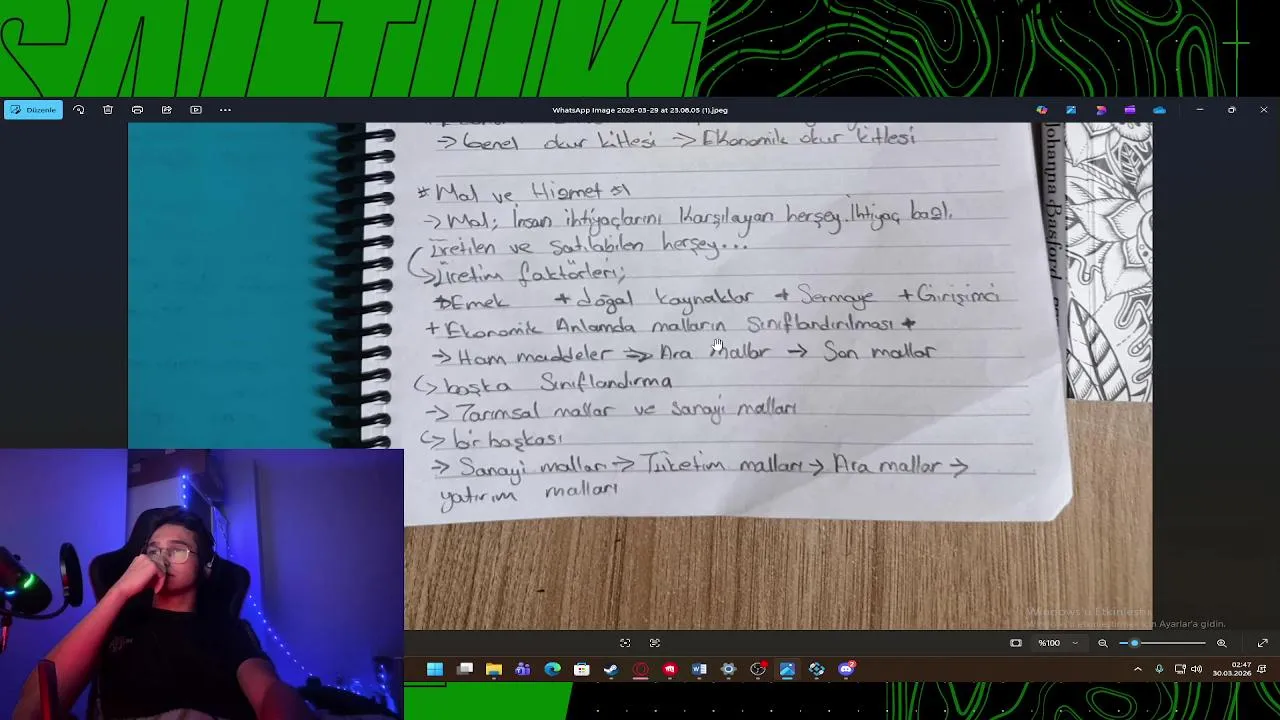 Düzenle
WhatsApp Image 2026-03-29 at 23.08.05 (1).jpeg
→ Genel okur kitlesi → Ekonomik okur kitlesi
* Mal ve Hizmet *
→ Mal; İnsan ihtiyaçlarını karşılayan herşey. İhtiyaç bağl.
Üretilen ve satılabilen herşey...
→ Üretim faktörleri;
* Emek + doğal kaynaklar + Sermaye + Girişimci
+ Ekonomik Anlamda malların Sınıflandırılması +
→ Ham maddeler → Ara mallar → Son mallar
↳ başka Sınıflandırma
→ Tarımsal mallar ve sanayi malları
↳ bir başkası
→ Sanayi malları → Tüketim malları → Ara mallar →
yatırım malları
Johanna Basford
Windows'u Etkinleştir
Windows'u etkinleştirmek için Ayarlar'a gidin.
%100
02:47
30.03.2026